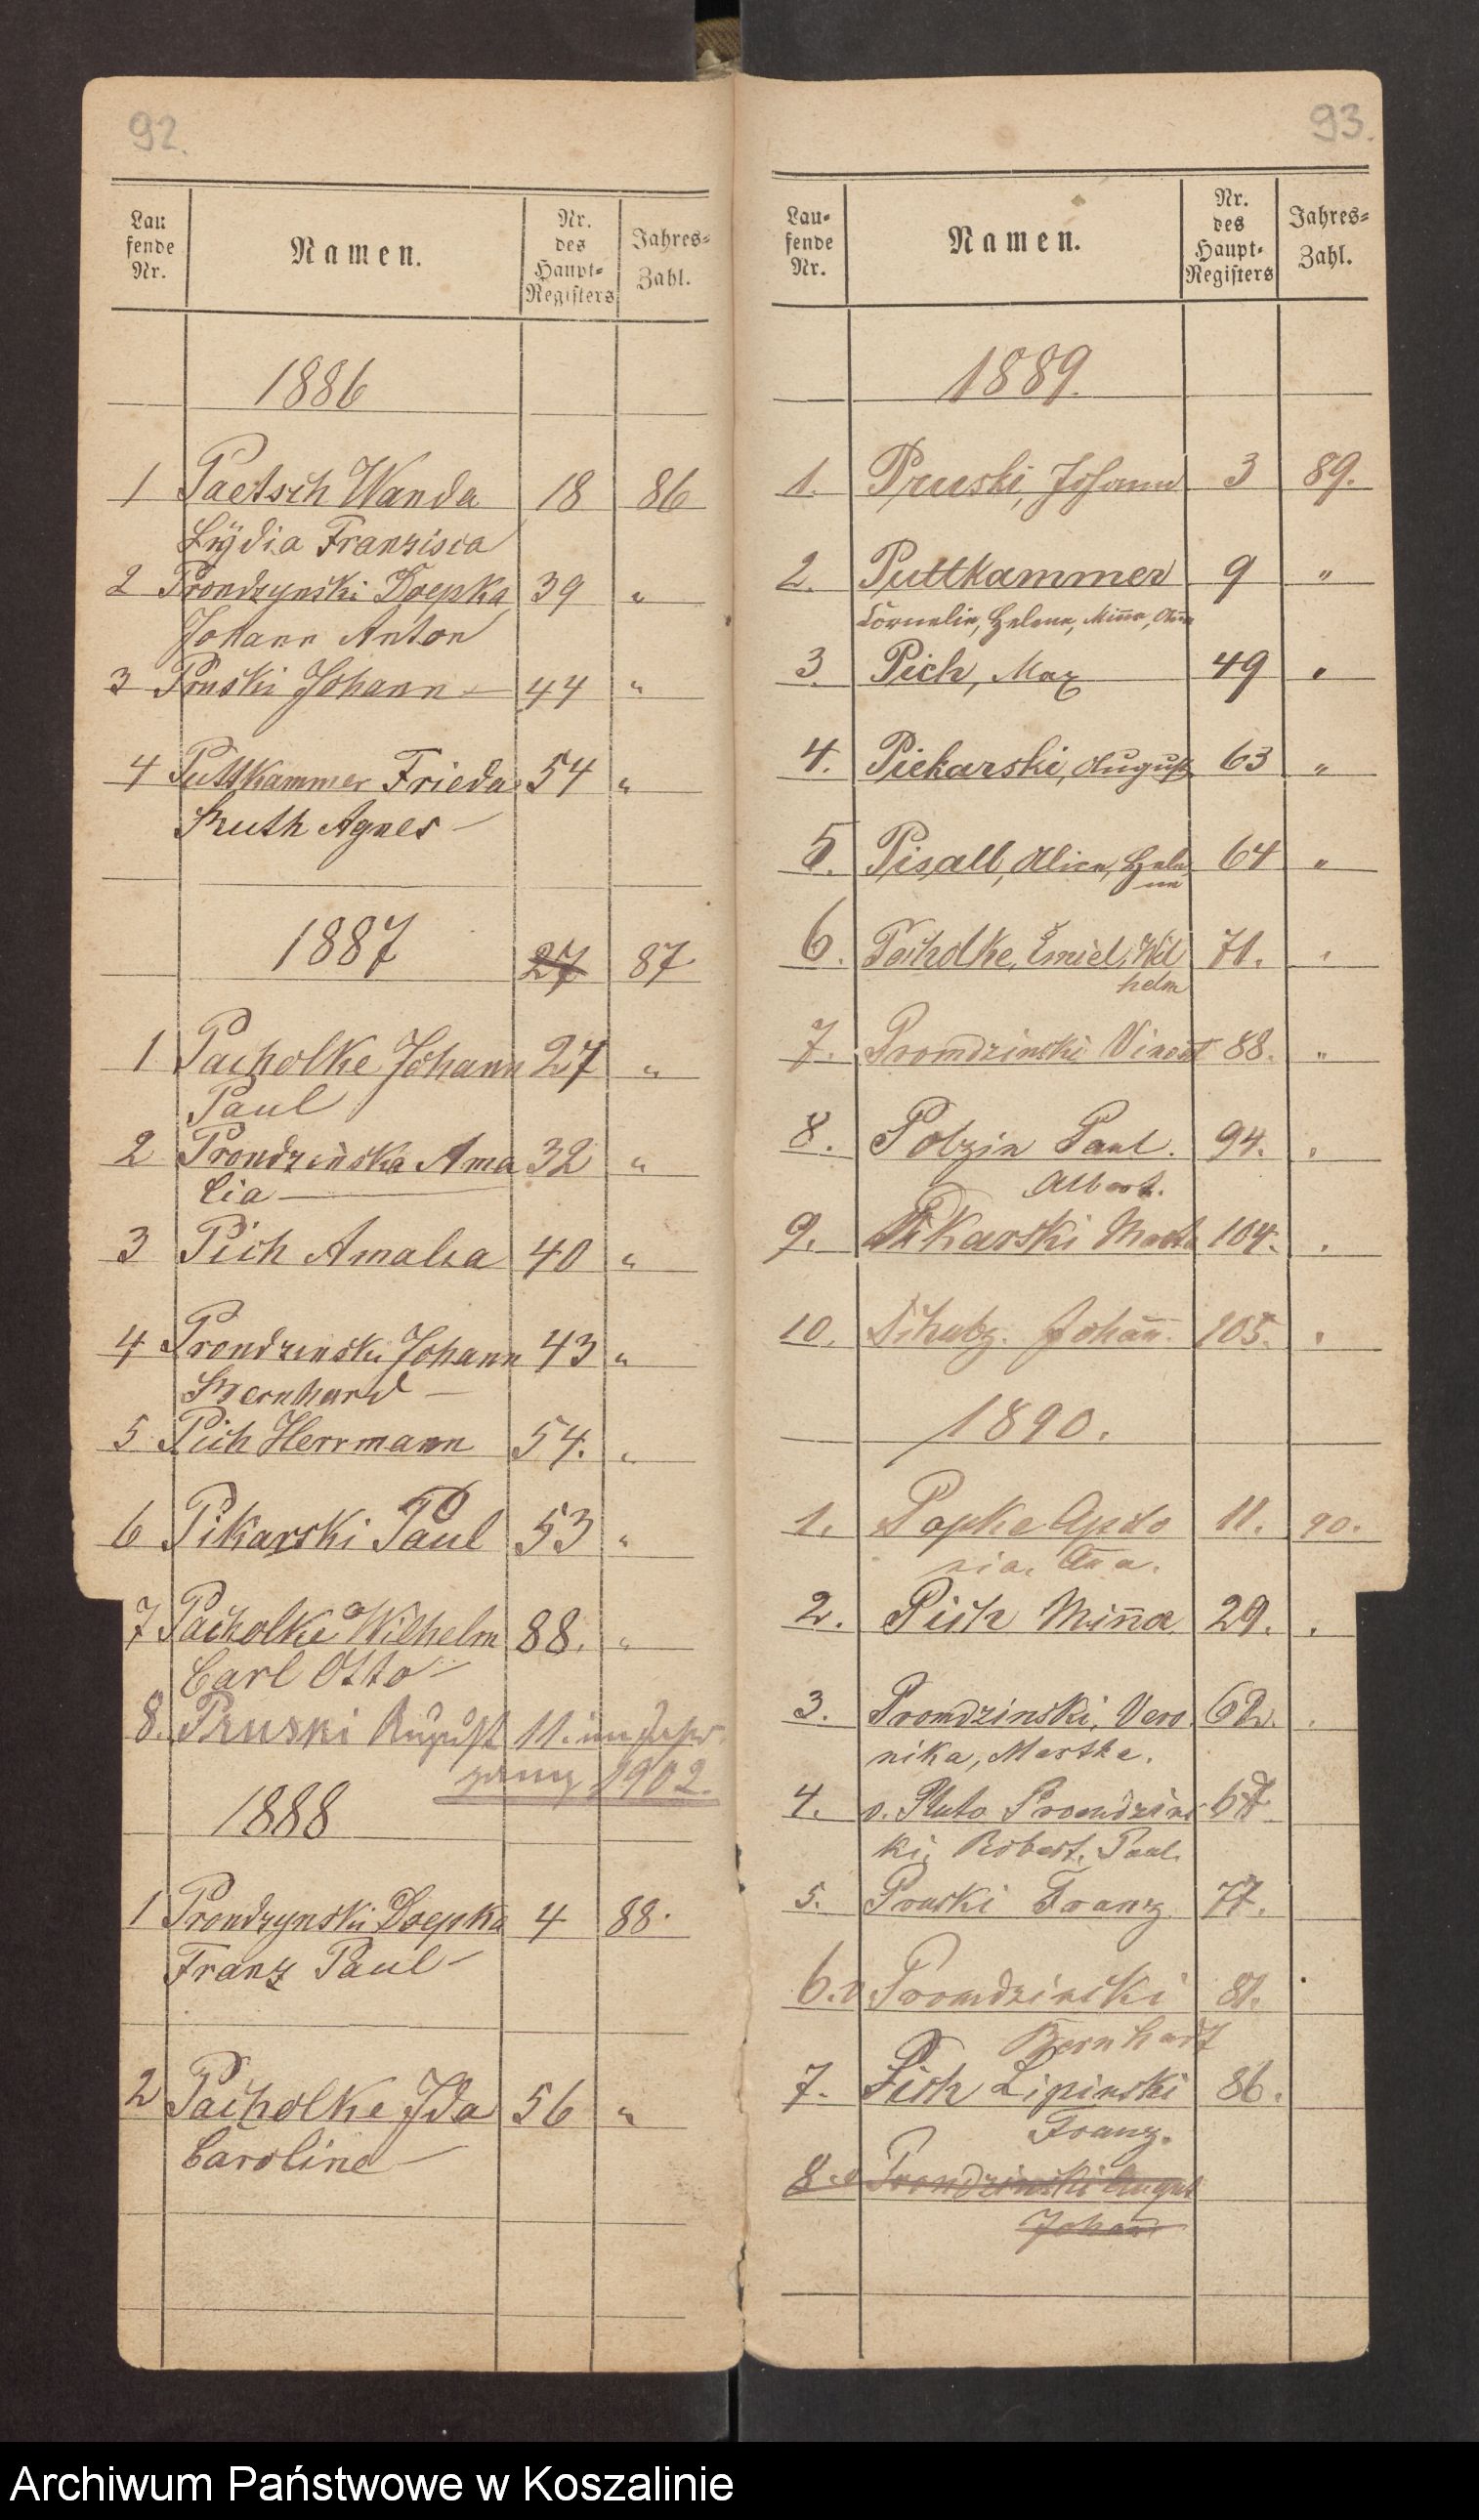 92.
Lau
fende
Nr.
Namen.
Nr.
des
Haupt-
Registers
Jahres-
Zahl.
1886
1 Paetsch Wanda 18 86
Lÿdia Franzisca
2 Prondzynski Drepka 39 "
Johann Anton
3 Pruski Johann — 44 "
4 Puttkammer Frieda 54 "
Ruth Agnes —
1887 27 87
1 Pacholke Johann 27 "
Paul
2 Prondzinska Ama 32 "
lia —
3 Pich Amalia 40 "
4 Prondzinski Johann 43 "
Bernhard —
5 Pich Herrmann 54. "
6 Pikarski Paul 53 "
7 Pacholke Wilhelm 88. "
Carl Otto —
8. Pruski August 11. im
1902.
1888
1 Prondzynski Drepka 4 88.
Franz Paul —
2 Pacholke Ida 56 "
Caroline —
93.
Lau-
fende
Nr.
Namen.
Nr.
des
Haupt-
Registers
Jahres-
Zahl.
1889.
1. Pruski, Johann 3 89.
2. Puttkammer 9 "
Cornelie, Helene, Minna,
3. Pich, Max 49 "
4. Piekarski, August 63 "
5. Pisall, Alice, Hele 64 "
ne
6. Pacholke, Emiel, Wil 71. "
helm
7. Promdzinski 88. "
8. Polzin Paul. 94. "
Albert.
9. Pikarski 104. "
10. Johan̄. 105. "
1890.
1. Popke Apolo 11. 90.
nia,
2. Pich Min̄a 29. "
3. Promdzinski, Vero 62. "
nika, Martha.
4. v. Pluto Promdzins 67
ki, Robert, Paul.
5. Pruski Franz 77.
6. v. Promdzinski 81.
Bernhard
7. Pich Lipinski 86.
Franz.
8. v. Prondzinski August
Johan̄
Archiwum Państwowe w Koszalinie